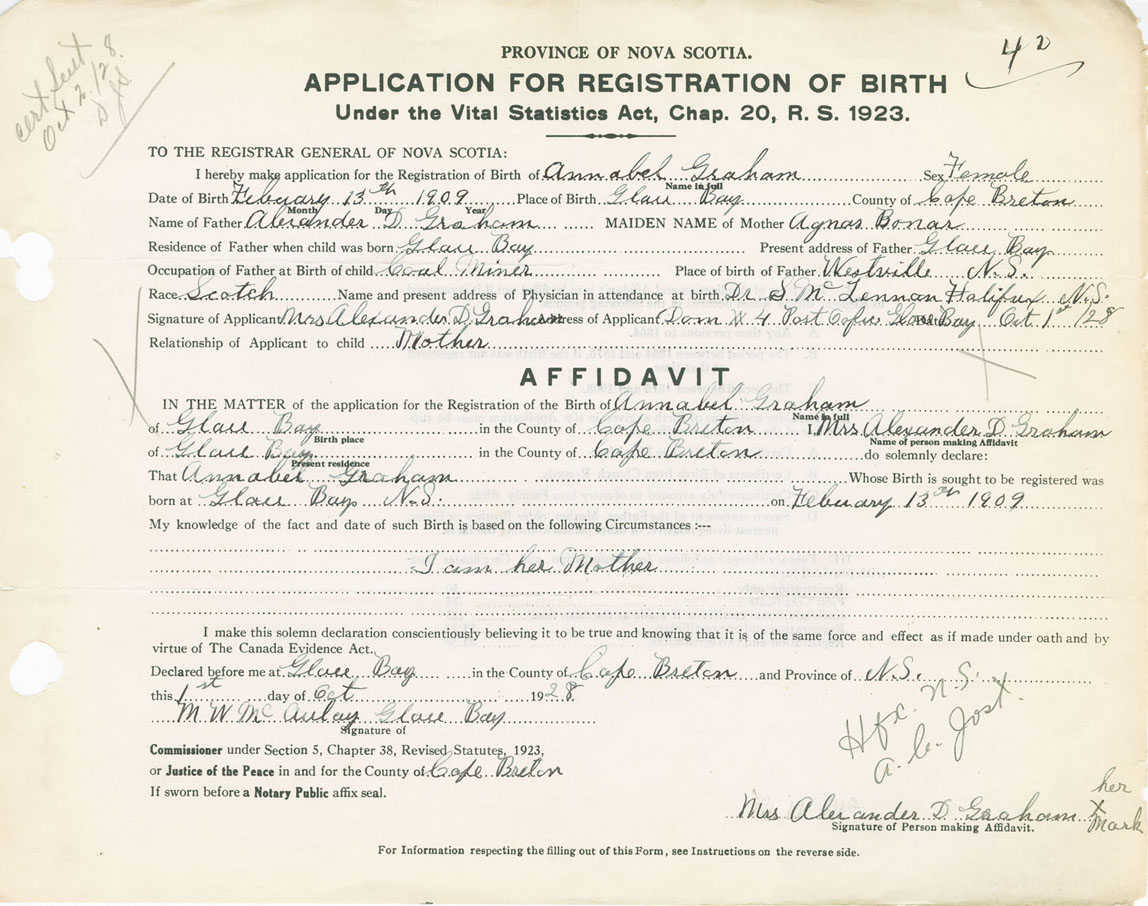 cert sent
Oct 2/28.
42
PROVINCE OF NOVA SCOTIA.
APPLICATION FOR REGISTRATION OF BIRTH
Under the Vital Statistics Act, Chap. 20, R. S. 1923.
TO THE REGISTRAR GENERAL OF NOVA SCOTIA:
I hereby make application for the Registration of Birth of Annabel Graham Sex Female
Name in full
Date of Birth Febuary 13th 1909 Place of Birth Glace Bay County of Cape Breton
Month Day Year
Name of Father Alexander D Graham MAIDEN NAME of Mother Agnas Bonar
Residence of Father when child was born Glace Bay Present address of Father Glace Bay
Occupation of Father at Birth of child Coal Miner Place of birth of Father Westville N.S.
Race Scotch Name and present address of Physician in attendance at birth Dr S McLennan Halifax N.S.
Signature of Applicant Mrs Alexander D Graham Address of Applicant Dom # 4 Post Office Glace Bay Oct 1st /28
Relationship of Applicant to child Mother
AFFIDAVIT
IN THE MATTER of the application for the Registration of the Birth of Annabel Graham
Name in full
of Glace Bay in the County of Cape Breton I, Mrs Alexander D Graham
Birth place Name of person making Affidavit
of Glace Bay in the County of Cape Breton do solemny declare:
Present residence
That Annabel Graham Whose Birth is sought to be registered was
born at Glace Bay N.S. on Febuary 13th 1909
My knowledge of the fact and date of such Birth is based on the following Circumstances :---
I am her Mother
I make this solemn declaration conscientiously believing it to be true and knowing that it is of the same force and effect as if made under oath and by
virtue of The Canada Evidence Act.
Declared before me at Glace Bay in the County of Cape Breton and Province of N.S.
this 1st day of Oct 1928
M W McAulay Glace Bay
Signature of
Commissioner under Section 5, Chapter 38, Revised Statutes, 1923,
or Justice of the Peace in and for the County of Cape Breton
If sworn before a Notary Public affix seal.
Hfx. N.S.
A. C. Jost.
her
Mrs Alexander D Graham X
Mark
Signature of Person making Affidavit.
For Information respecting the filling out of this Form, see Instructions on the reverse side.